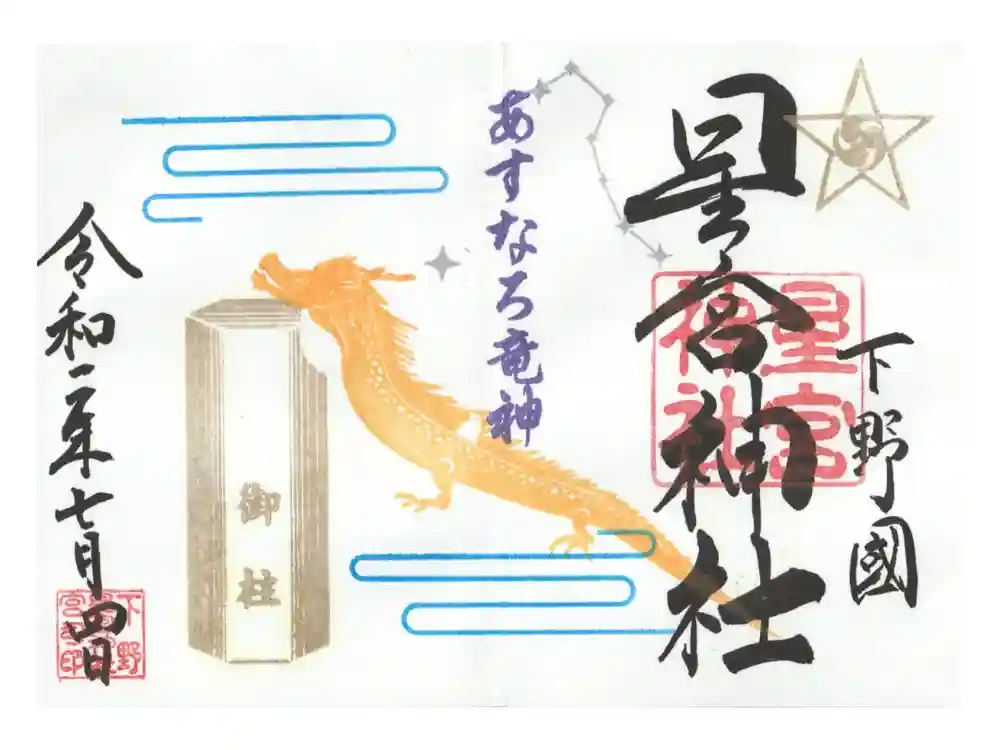 下野國
星宮神社
星宮神社
あすなろ竜神
御柱
令和二年七月四日